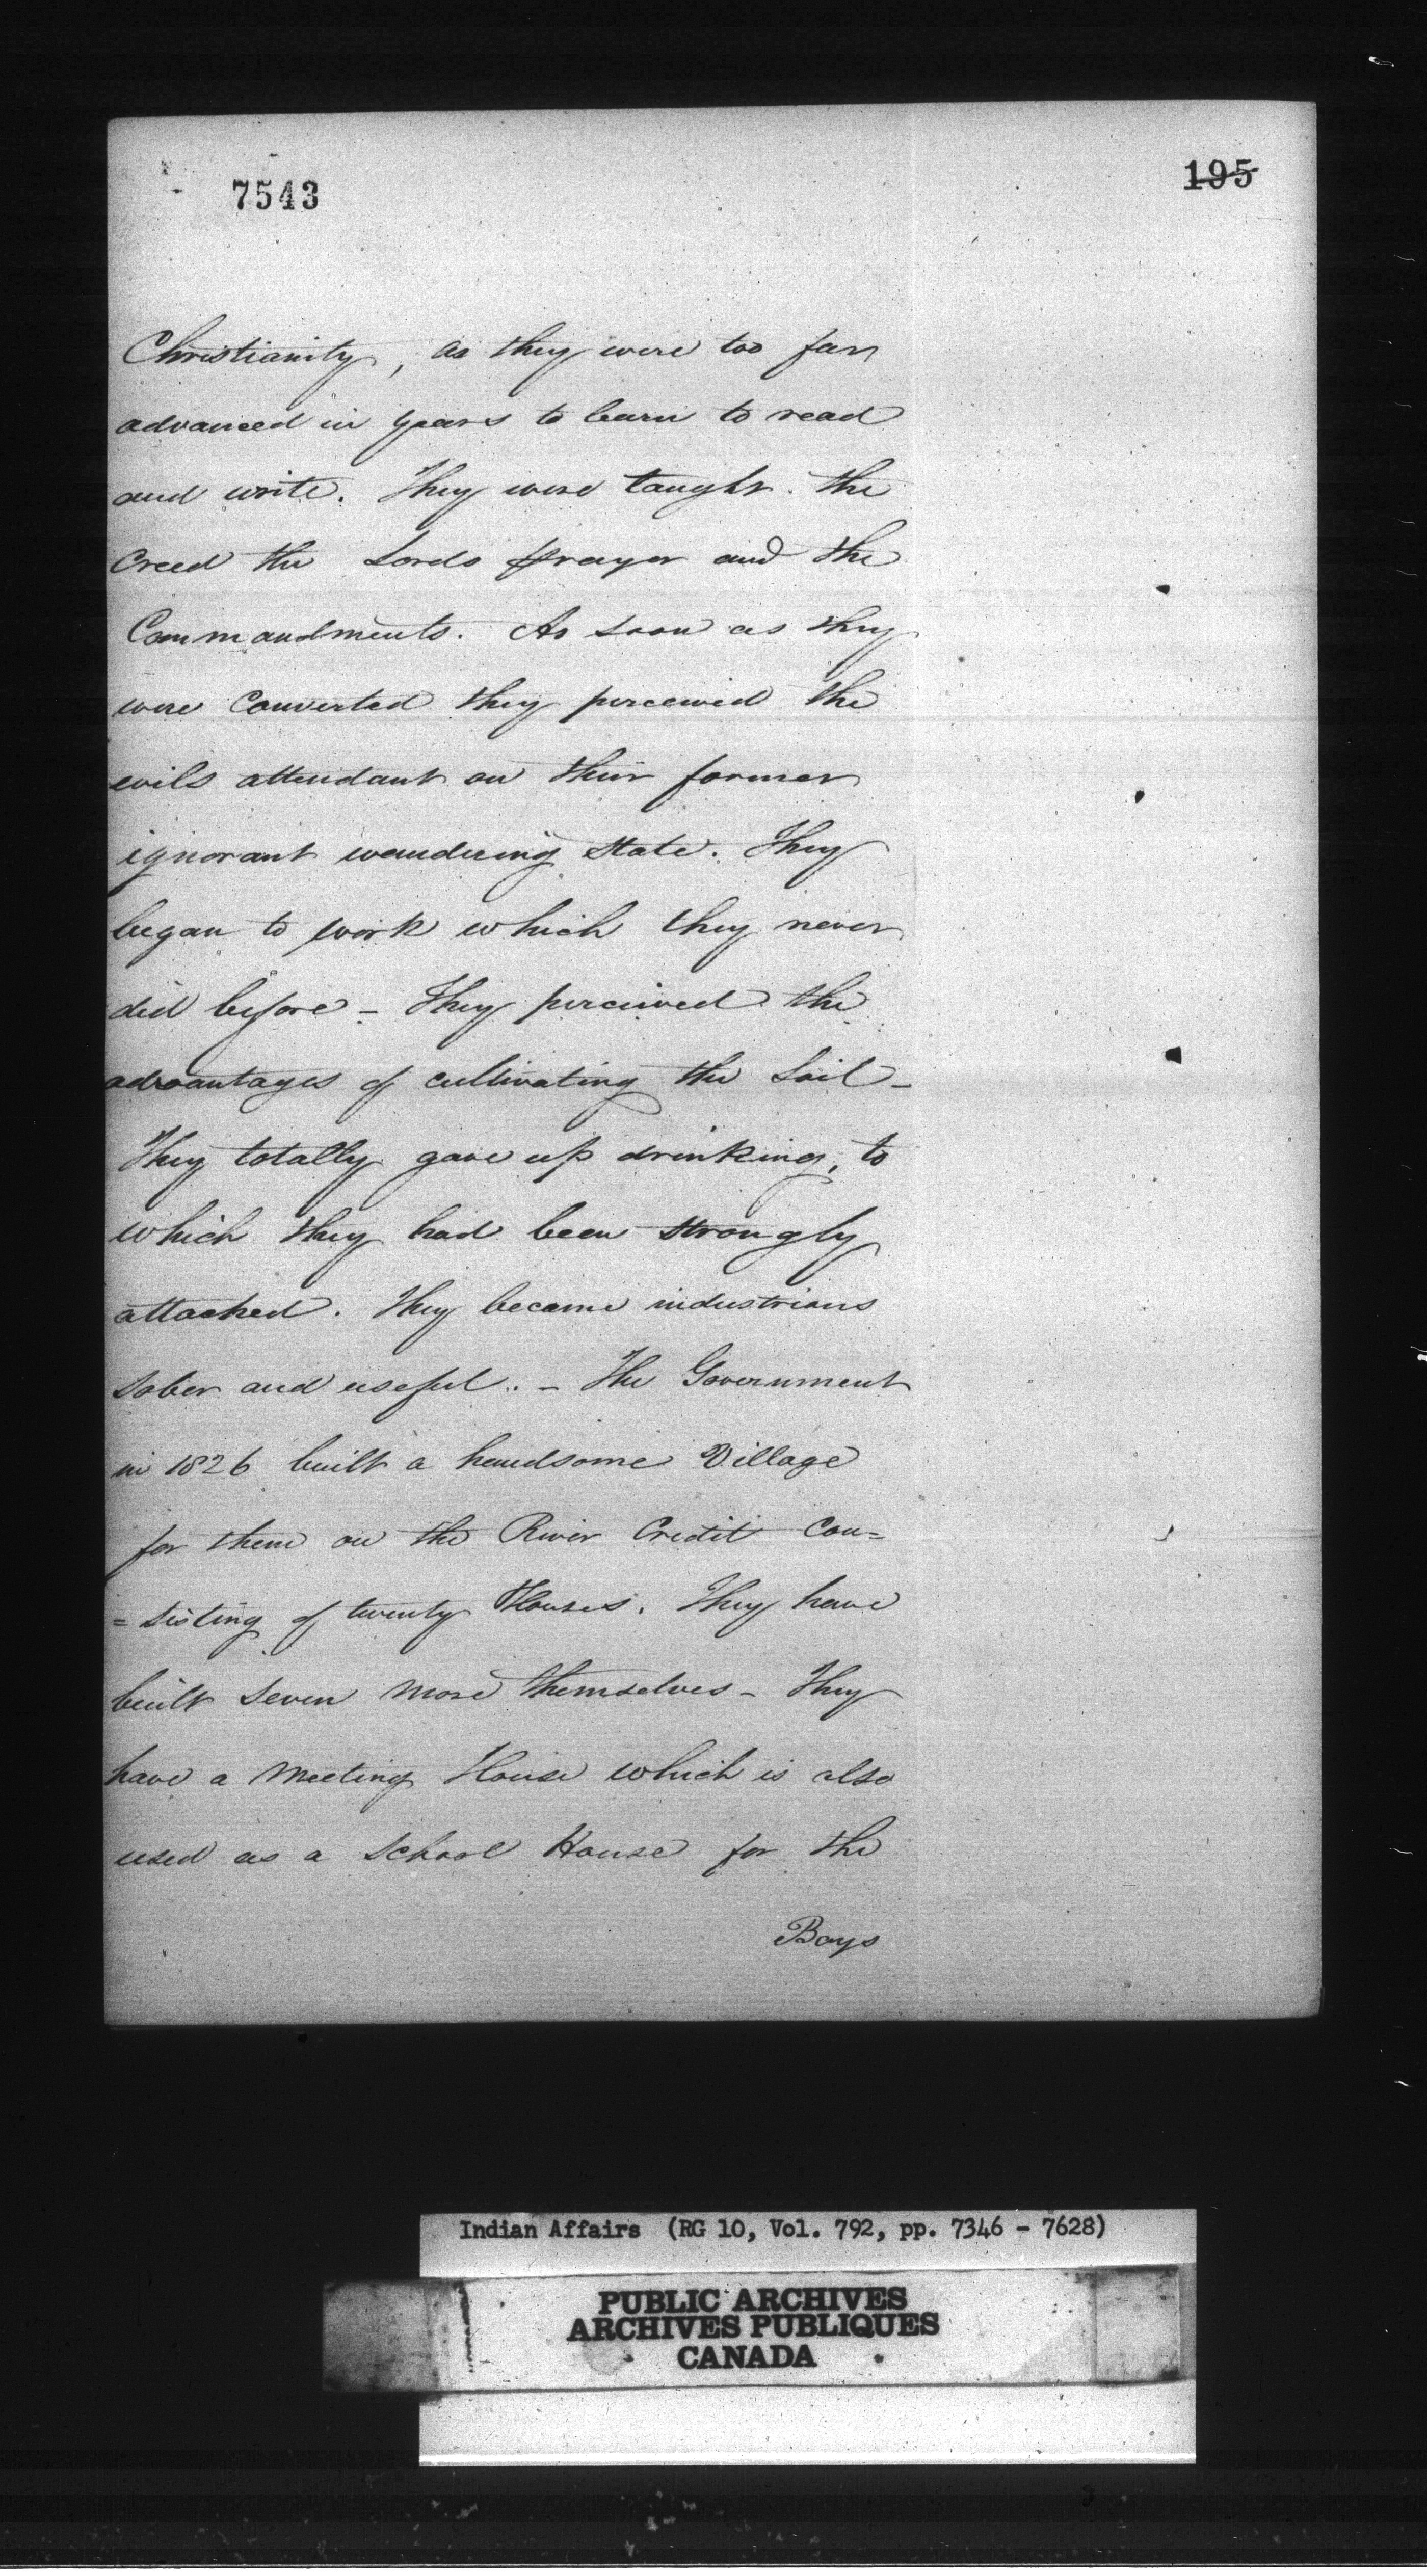 7543
195
Christianity, as they were too far
advanced in years to learn to read
and write. They were taught the
Creed the Lords prayer and the
Commandments. As soon as they
were Converted they perceived the
evils attendant on their former
ignorant wandering State. They
began to work which they never
did before - They perceived the
advantages of cultivating the Soil -
They totally gave up drinking, to
which they had been strongly
attached. They became industrious
sober and useful. - The Government
in 1826 built a handsome Village
for them on the River Credit Con=
=sisting of twenty Houses. They have
built Seven more themselves - They
have a Meeting House which is also
used as a School House for the
Boys
Indian Affairs (RG 10, Vol. 792, pp. 7346 - 7628)
PUBLIC ARCHIVES
ARCHIVES PUBLIQUES
CANADA